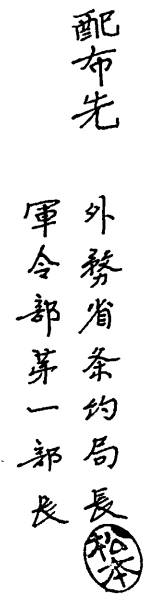 配布先
外務省条約局長
松本
軍令部第一部長